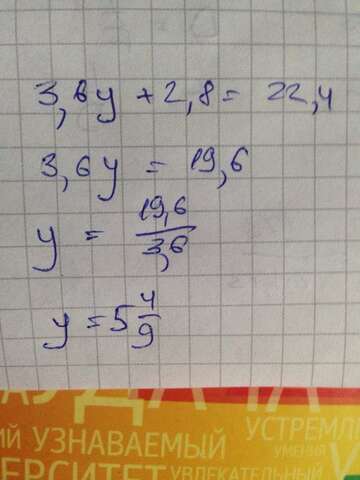 3,6y + 2,8 = 22,4
3,6y = 19,6
y = 19,6/3,6
y = 5 4/9
УДАЧА
ИЙ УЗНАВАЕМЫЙ УСТРЕМЛ
УМЕНИЯ
ЕРСИТЕТ УВЛЕКАТЕЛЬНЫЙ